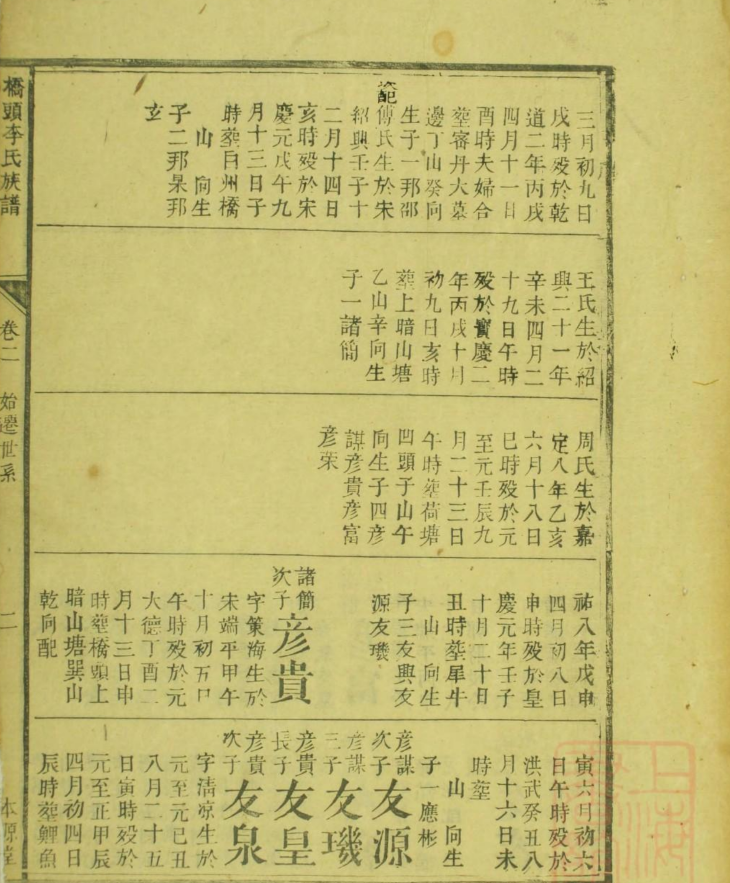 三月初九日
戌時殁於乾
道二年丙戌
四月十一日
酉時夫婦合
塟審丹大墓
邊丁山癸向
生子一邦邵
配
傅氏生於宋
紹興壬子十
二月十四日
亥時殁於宋
慶元戊午九
月十三日子
時塟白州橋
山 向生
子二邦杲邦
玄
王氏生於紹
興二十一年
辛未四月二
十九日午時
殁於寶慶二
年丙戌十月
初九日亥時
塟上暗山塘
乙山辛向生
子一諸簡
周氏生於嘉
定八年乙亥
六月十八日
巳時殁於元
至元壬辰九
月二十三日
午時塟荷塘
凹頭子山午
向生子四彦
謀彦貴彦富
彦荣
祐八年戊申
四月初八日
申時殁於皇
慶元年壬子
十月二十日
丑時塟犀牛
山 向生
子三友興友
源友璣
諸簡
次子
彦貴
字策海生於
宋端平甲午
十月初五日
午時殁於元
大德丁酉二
月十三日申
時塟橋頭上
暗山塘巽山
乾向配
寅六月初六
日午時殁於
洪武癸丑八
月十六日未
時塟
山 向生
子一應彬
彦謀
次子
友源
彦謀
三子
友璣
彦貴
長子
友皇
彦貴
次子
友泉
字清凉生於
元至元己丑
八月二十五
日寅時殁於
元至正甲辰
四月初四日
辰時塟鯉魚
橋頭李氏族譜
卷二
始遷世系
二
本源堂